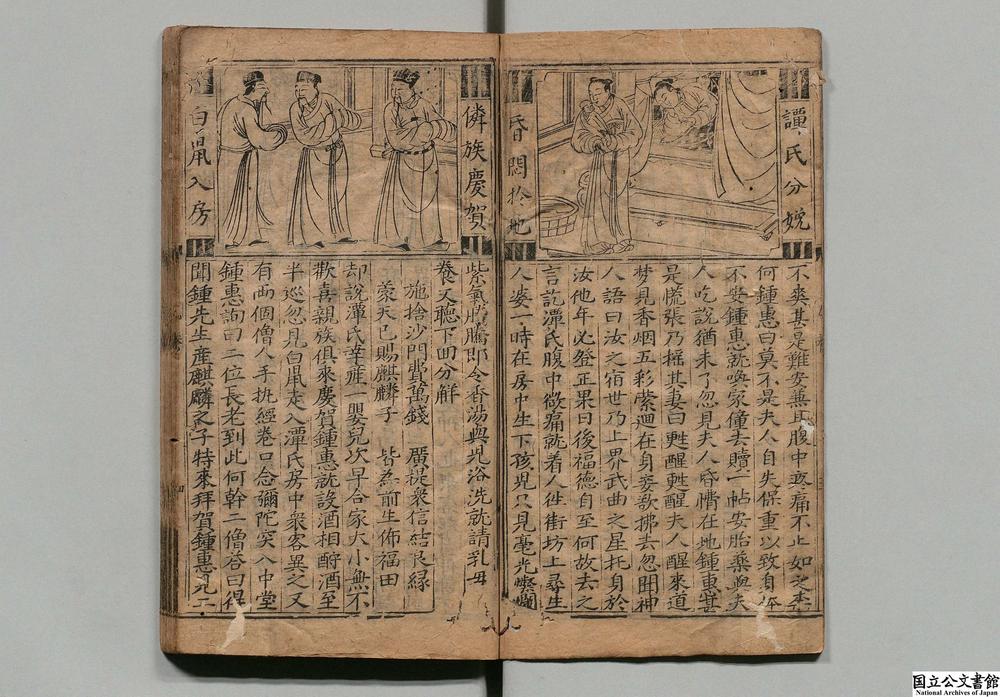 譚氏分娩
昏悶於地
不爽甚是難安兼且腹中疼痛不止如之奈
何鍾惠曰莫不是夫人自失保重以致身体
不安鍾惠就喚家僮去贖一帖安胎藥與夫
人吃說猶未了忽見夫人昏憒在地鍾惠甚
是慌張乃搖其妻曰甦醒甦醒夫人醒來道
夢見香烟五彩縈迴在身妾欲拂去忽聞神
人語曰汝之宿世乃上界武曲之星托身於
汝他年必登正果日後福德自至何故去之
言訖潭氏腹中微痛就着人徃街坊上尋生
人婆一時在房中生下孩児只見毫光燦爛
隣族慶賀
白鼡入房
紫氣騰騰即令香湯與児浴洗就請乳母
養天聽下回分解
施捨沙門費萬錢 廣提衆信結良緣
蒙天已賜麒麟子 皆為前生佈福田
却說潭氏幸産一嬰兒次早合家大小無不
歡喜親族俱來慶賀鍾惠就設酒相酧酒至
半巡忽見白鼡走入潭氏房中衆客異之又
有兩個僧人手执經卷口念彌陀突入中堂
鍾惠詢曰二位長老到此何幹二僧答曰得
聞鍾先生産麒麟之子特來拜賀鍾惠見二
国立公文書館
National Archives of Japan